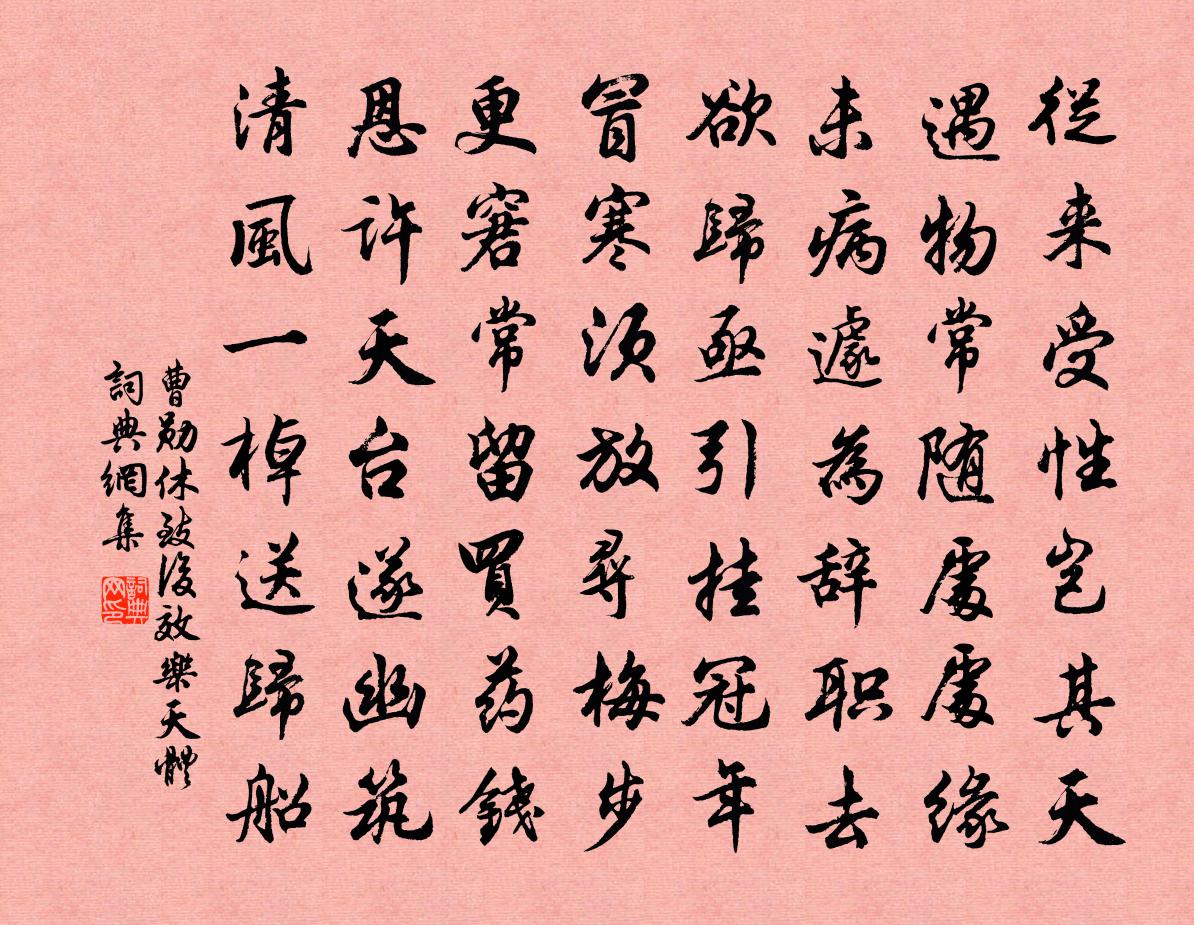 從来受性岂其天
遇物常随處處緣
未病遽為辞职去
欲歸亟引挂冠年
冒寒須放尋梅步
更窘常留買药錢
恩许天台遂幽筑
清風一棹送歸船
曹勋休致後效樂天體
詞典網集
詞典网印